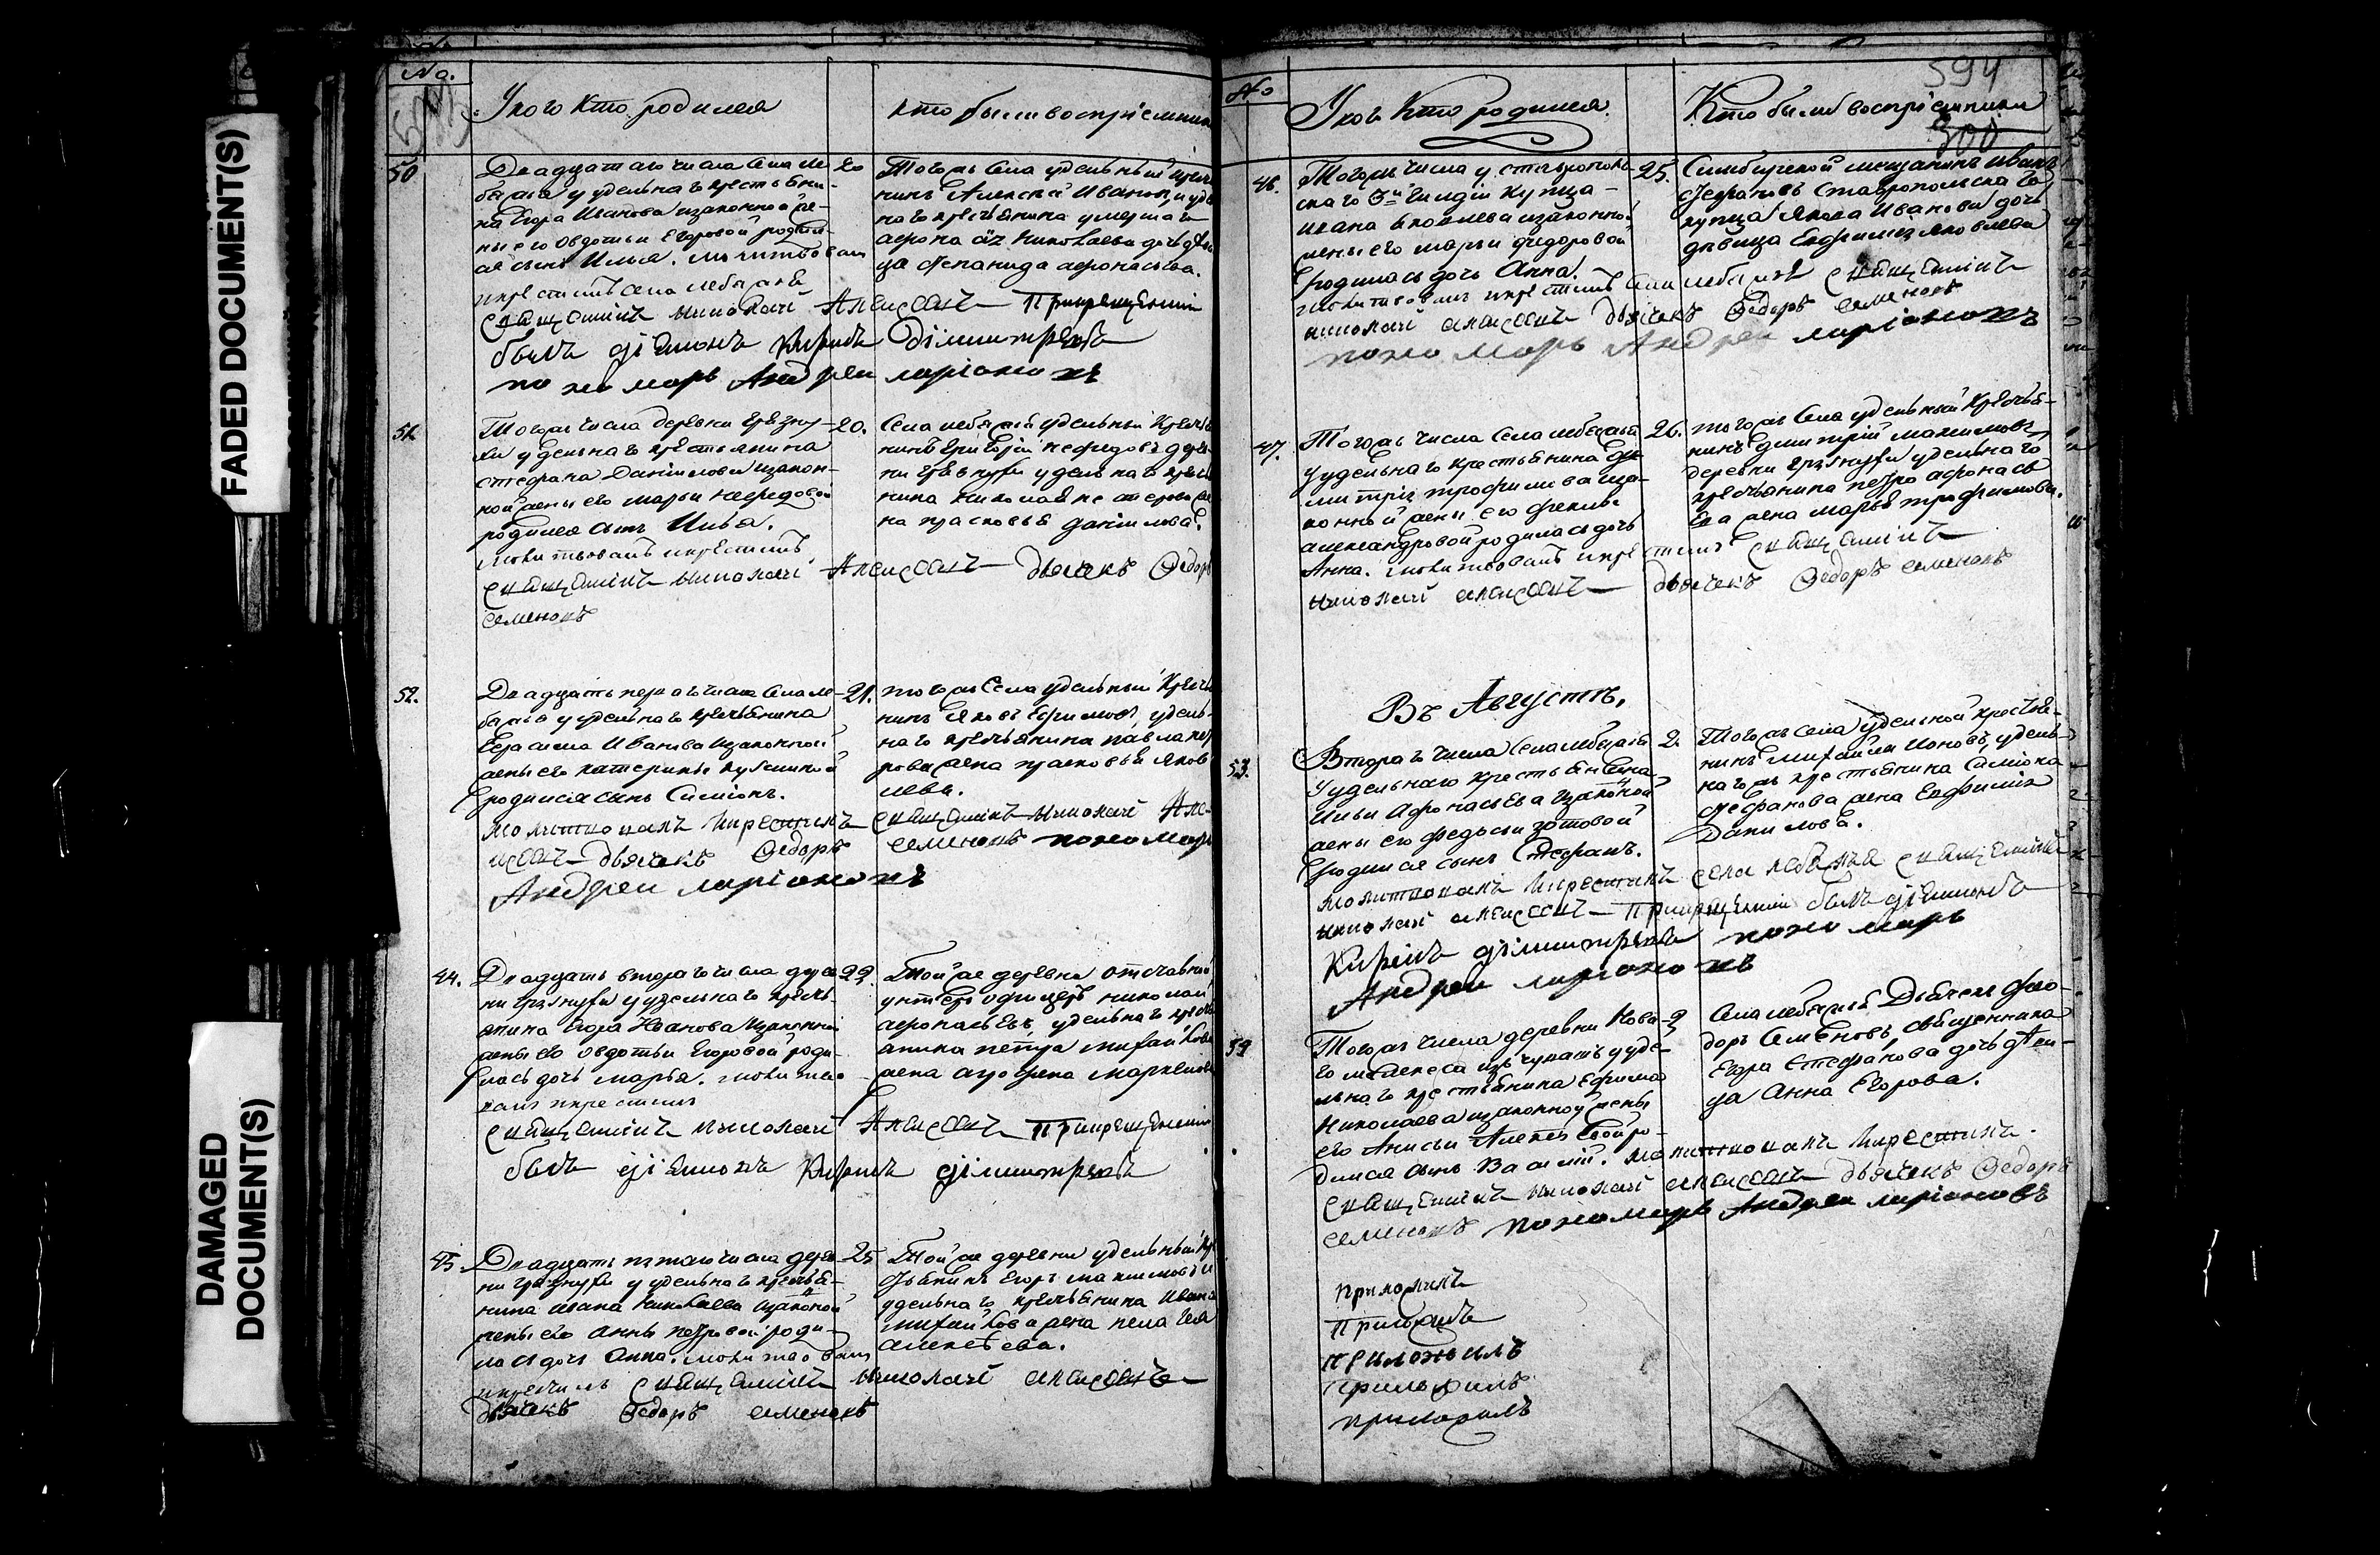 FADED DOCUMENT(S)
DAMAGED
DOCUMENT(S)
No.
У кого кто родился
кто были воспрiемники
50
Двадцатаго числа села Ле-
20
баже у удельнаго крестьяни-
на Егора Иванова изаконной же-
ны его Овдотьи Егоровой родил-
ся сынъ Илья. молитвовалъ
икрестилъ села лебяжья
священникъ николай Алексеевъ При крещенiи
былъ дiяконъ Кирилъ Дiмитрiевъ
пономарь Андреи ларiоновъ
Тогожъ села удельный крестья
нинъ Алексей Ивановъ, и удель
наго крестьянина умершаго
афонасiя николаева дочь деви
ца степанида афонасьева.
51
Тогожъ числа деревни Грязну-
20.
хи удельнаго крестьянина
стефана Данiилова изакон-
ной жены его марьи нефедовой
родился сынъ Илья.
молитвовалъ икрестилъ
священникъ николай Алексеевъ дьячекъ Федоръ
семеновъ
Села лебяжья удельный крестья
нинъ Григорiй нефедовъ дерев
ни грязнухи удельнаго крестья
нина николая нестерова же
на прасковья данiилова.
52.
Двадцать перваго числа села ле-
21.
бяжья у удельнаго крестьянина
Герасима Иванова изаконной
жены его катерины кузминой
родился сынъ Симiонъ.
молитвовалъ икрестилъ священникъ николай Але-
ксеевъ дьячекъ Федоръ семеновъ пономарь
Андреи ларiоновъ
тогожъ села удельный крестья
нинъ Яковъ Ефимовъ, удель-
наго крестьянина павла пет
рова жена прасковья яков
лева.
44.
Двадцать втораго числа дерев
22.
ни грязнухи у удельнаго кресть-
янина Егора Иванова изаконной
жены его овдотьи Егоровой роди-
лась дочь марья. молитво
валъ икрестилъ
священникъ николай Алексеевъ При крещенiи
былъ дiяконъ Кирилъ дiмитрiевъ
Той же деревни отставной
унтеръ офицеръ николай
афонасьевъ, удельнаго кресть
янина петра михайлова
жена агрофена маркелова
45.
Двадцать пятаго числа дерев
25
ни грязнухи у удельнаго крестья-
нина ивана николаева изаконой
жены его анны петровой роди-
лась дочь Анна. молитвовалъ
икрестилъ священникъ николай алексеевъ
дьячекъ Федоръ семеновъ
Той же деревни удельный кре
стьянинъ Егоръ максимовъ и
удельнаго крестьянина Ивана
михайлова жена пелагея
алексеева.
No
594
300
У кого Кто родился.
Кто были воспрiемники
46.
Тогожъ числа у ставрополь-
25.
скаго 3й гильдiи купца
ивана яковлева изаконной
жены его марьи федоровой
родилась дочь Анна.
молитвовалъ икрестилъ села лебяжья священникъ
николай алексеевъ дьячекъ Федоръ семеновъ
пономарь Андреи ларiоновъ
Симбирской мещанинъ иванъ
стефановъ ставропольскаго
купца Якова Иванова дочь
девица Евфимiя яковлева
47.
Тогожъ числа села лебяжья
26.
у удельнаго крестьянина Ди-
митрiя трофимова иза-
конной жены его феклы
александровой родилась дочь
Анна. молитвовалъ икрестилъ священникъ
николай алексеевъ дьячекъ Федоръ семеновъ
тогожъ села удельный крестья-
нинъ димитрiй максимовъ
деревни грязнухи удельнаго
крестьянина петра афонась
ева жена марья трофимова.
Въ Августѣ.
53.
Втораго числа села лебяжья
2.
у удельнаго крестьянина
Ильи Афонасьева изаконой
жены его федосьи зотовой
родился сынъ Стефанъ.
молитвовалъ икрестилъ села лебяжья священникъ
николай алексеевъ При крещенiи былъ дiяконъ
Кирилъ дiмитрiевъ пономарь
Андреи ларiоновъ
Тогожъ села удельной крестья-
нинъ михайла Ионовъ, удель-
нагожъ крестьянина Симiона
стефанова жена Евфимiя
Данилова.
54
Тогожъ числа деревни Ново-
2
удельнаго крестьянина Ефима
Николаева изаконной жены
его Анисьи Алексеевой ро-
дился сынъ Василiй. молитвовалъ икрестилъ
священникъ николай алексеевъ дьячекъ Федоръ
семеновъ пономарь Андреи ларiоновъ
Села лебяжья Дьячекъ Фео-
доръ Семеновъ, священника
Егора Стефанова дочь деви-
ца Анна Егорова.
приложилъ